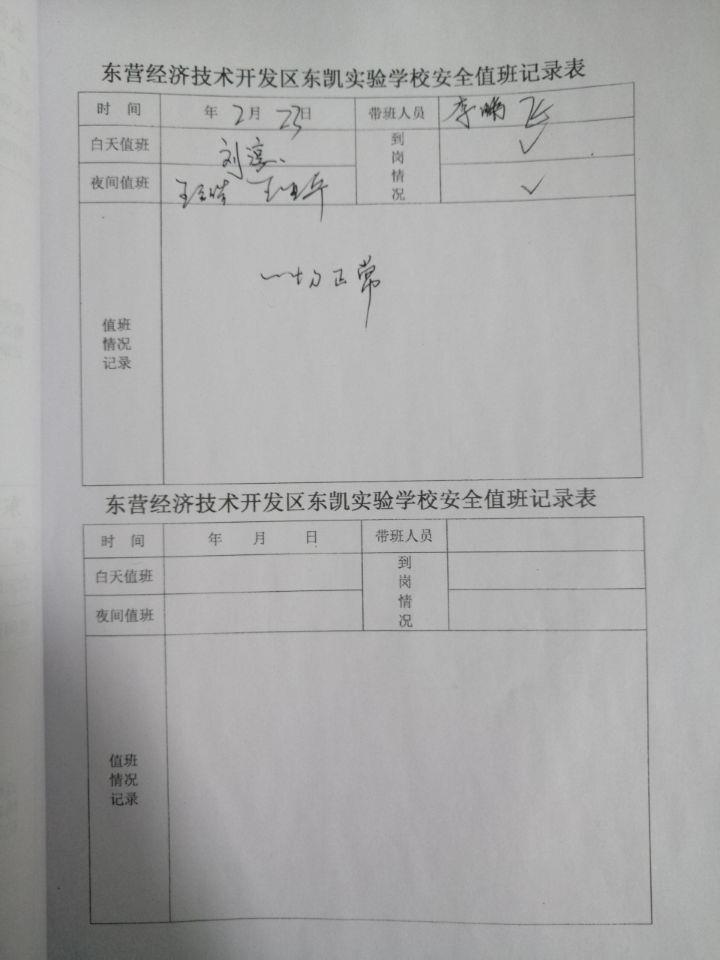 东营经济技术开发区东凯实验学校安全值班记录表
时 间 年 2月 23日 带班人员 李鹏飞
白天值班 刘 到岗情况 ✓
夜间值班 王 王 ✓
值班情况记录 一切正常
东营经济技术开发区东凯实验学校安全值班记录表
时 间 年 月 日 带班人员
白天值班 到岗情况
夜间值班
值班情况记录